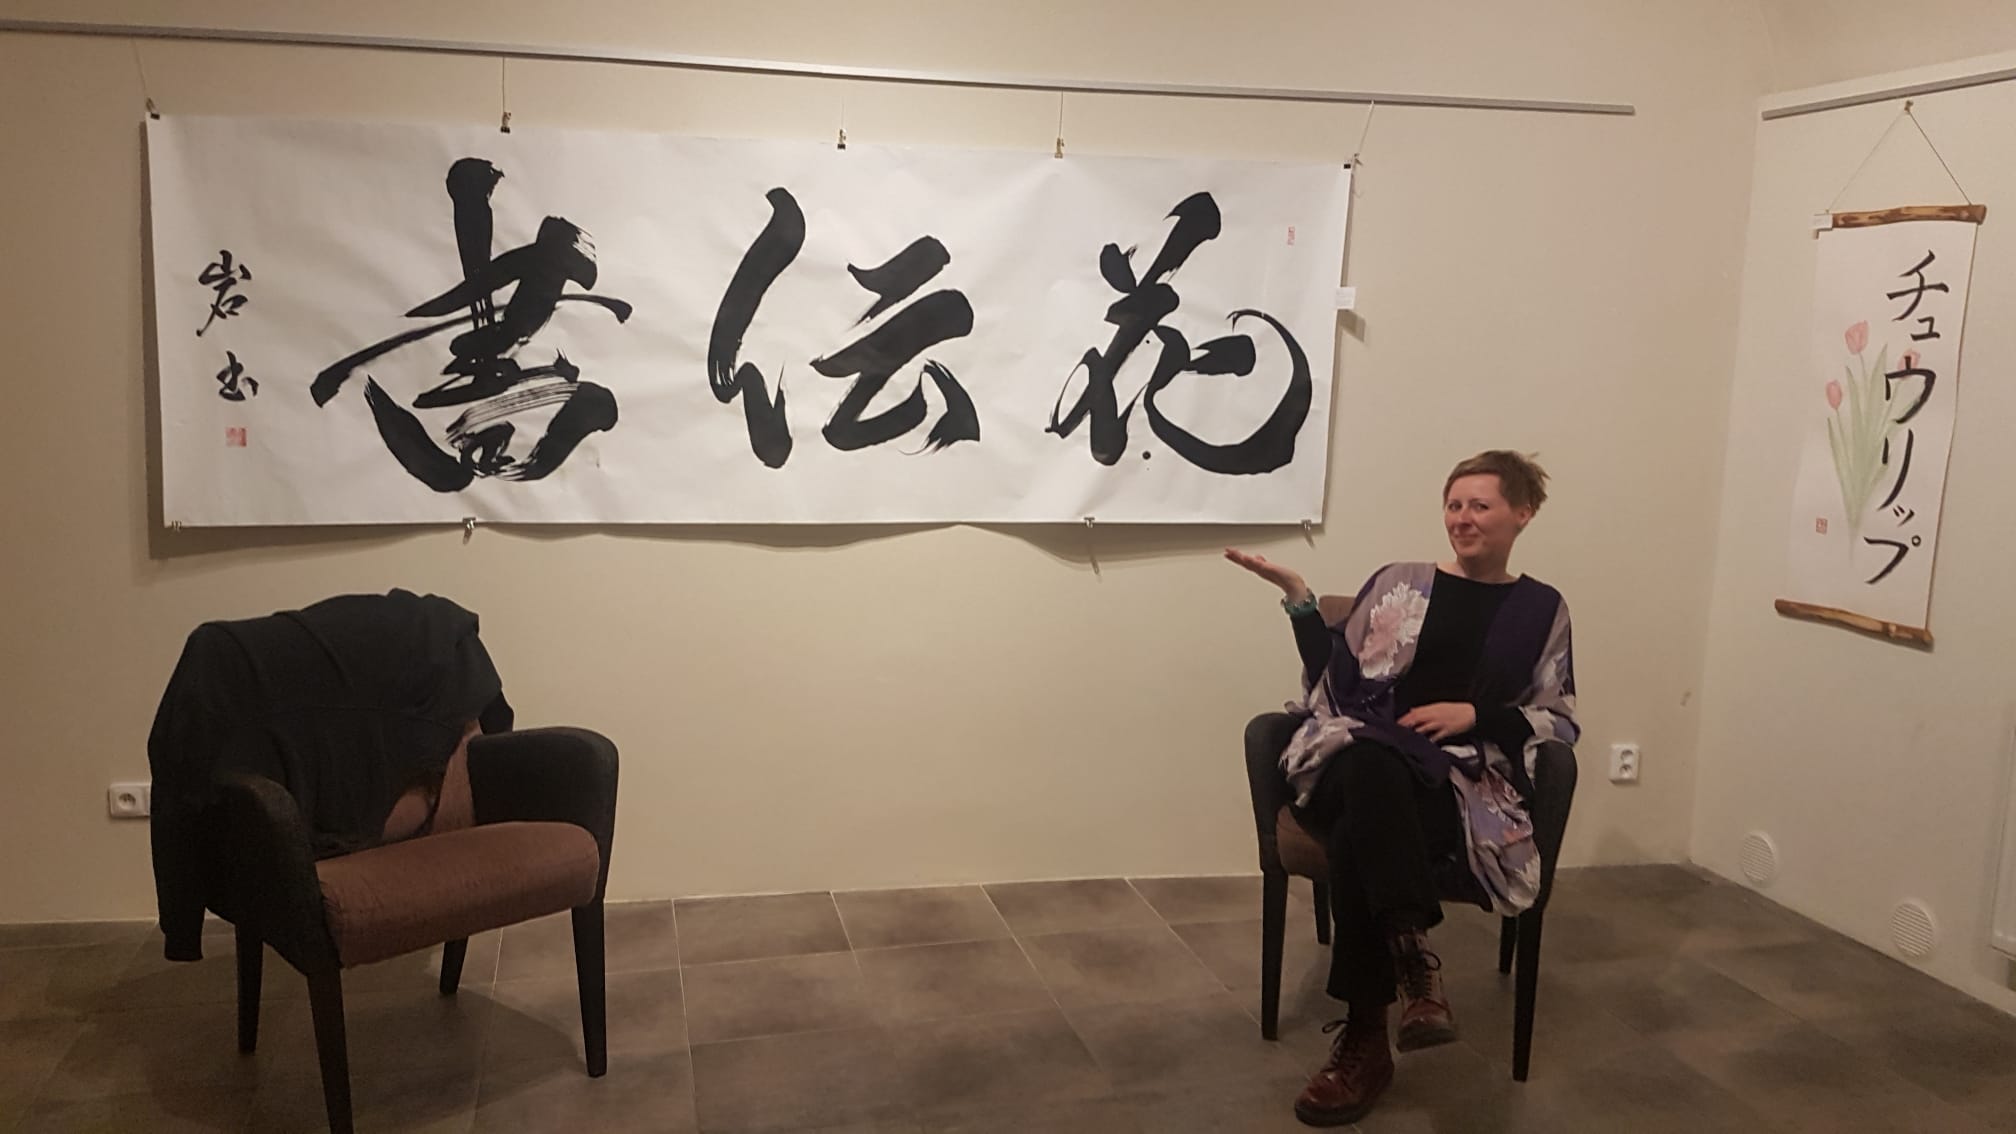 花伝書
岩
チュウリップ